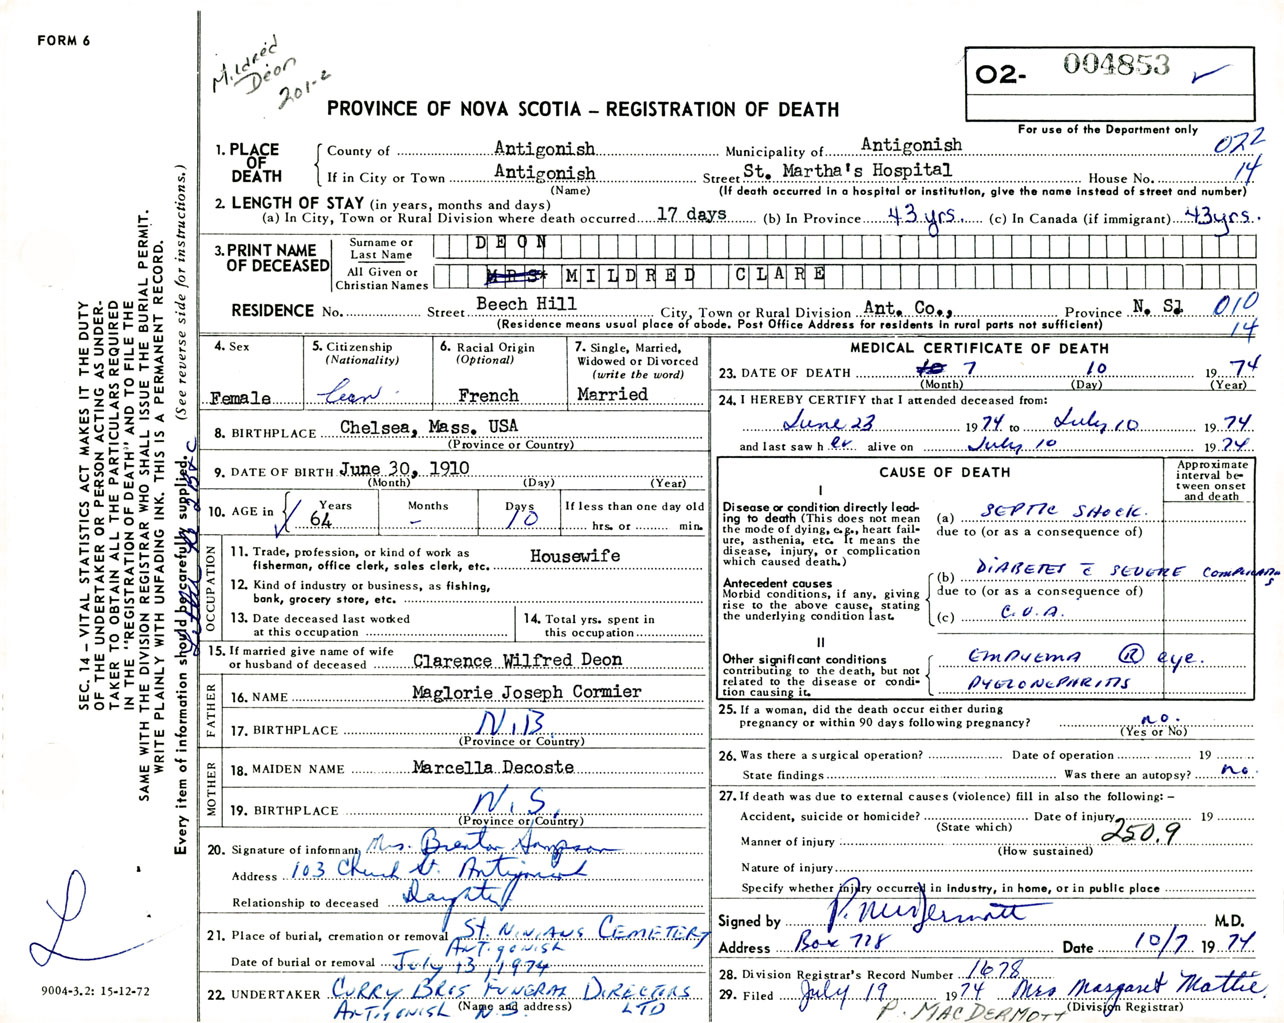 FORM 6
Mildred
Deon
201-2
O2- 004853 ✓
PROVINCE OF NOVA SCOTIA – REGISTRATION OF DEATH
For use of the Department only
022
14
1. PLACE OF DEATH
County of Antigonish Municipality of Antigonish
If in City or Town Antigonish Street St. Martha's Hospital House No.
(Name) (If death occurred in a hospital or institution, give the name instead of street and number)
2. LENGTH OF STAY (in years, months and days)
(a) In City, Town or Rural Division where death occurred 17 days (b) In Province 43 yrs. (c) In Canada (if immigrant) 43 yrs.
3. PRINT NAME OF DECEASED
Surname or Last Name DEON
All Given or Christian Names MRS. MILDRED CLARE
RESIDENCE No. Street Beech Hill City, Town or Rural Division Ant. Co., Province N. S.
(Residence means usual place of abode. Post Office Address for residents in rural parts not sufficient)
010
14
4. Sex
Female
5. Citizenship
(Nationality)
Can
6. Racial Origin
(Optional)
French
7. Single, Married,
Widowed or Divorced
(write the word)
Married
8. BIRTHPLACE Chelsea, Mass. USA
(Province or Country)
9. DATE OF BIRTH June 30, 1910
(Month) (Day) (Year)
10. AGE in ✓ Years 64 Months - Days 10 If less than one day old
hrs. or min.
OCCUPATION
11. Trade, profession, or kind of work as
fisherman, office clerk, sales clerk, etc. Housewife
12. Kind of industry or business, as fishing,
bank, grocery store, etc.
13. Date deceased last worked
at this occupation
14. Total yrs. spent in
this occupation
15. If married give name of wife
or husband of deceased Clarence Wilfred Deon
FATHER
16. NAME Maglorie Joseph Cormier
17. BIRTHPLACE N.B.
(Province or Country)
MOTHER
18. MAIDEN NAME Marcella Decoste
19. BIRTHPLACE N.S.
(Province or Country)
20. Signature of informant Mrs. Brenton Sampson
Address 103 Church St. Antigonish
Relationship to deceased Daughter
21. Place of burial, cremation or removal ST. NINIANS CEMETERY
ANTIGONISH
Date of burial or removal July 13, 1974
22. UNDERTAKER CURRY BROS FUNERAL DIRECTORS LTD
ANTIGONISH N.S. (Name and address)
MEDICAL CERTIFICATE OF DEATH
23. DATE OF DEATH 7 10 1974
(Month) (Day) (Year)
24. I HEREBY CERTIFY that I attended deceased from:
June 23 1974 to July 10 1974
and last saw her alive on July 10 1974
CAUSE OF DEATH
Approximate
interval be-
tween onset
and death
I
Disease or condition directly lead-
ing to death (This does not mean
the mode of dying, e.g., heart fail-
ure, asthenia, etc. It means the
disease, injury, or complication
which caused death.)
(a) SEPTIC SHOCK.
due to (or as a consequence of)
Antecedent causes
Morbid conditions, if any, giving
rise to the above cause, stating
the underlying condition last.
(b) DIABETES c̄ SEVERE
due to (or as a consequence of)
(c) C.V.A.
II
Other significant conditions
contributing to the death, but not
related to the disease or condi-
tion causing it.
EMPYEMA Ⓡ eye.
PYELONEPHRITIS
25. If a woman, did the death occur either during
pregnancy or within 90 days following pregnancy? no.
(Yes or No)
26. Was there a surgical operation? Date of operation 19
State findings Was there an autopsy? no
27. If death was due to external causes (violence) fill in also the following: –
Accident, suicide or homicide? Date of injury 19
(State which)
250.9
Manner of injury
(How sustained)
Nature of injury
Specify whether injury occurred in industry, in home, or in public place
Signed by P. MacDermott M.D.
Address Box 778 Date 10/7 1974
28. Division Registrar's Record Number 1678
29. Filed July 19 1974 Mrs Margaret Mattie
(Division Registrar)
P. MACDERMOTT
SEC. 14 – VITAL STATISTICS ACT MAKES IT THE DUTY
OF THE UNDERTAKER OR PERSON ACTING AS UNDER-
TAKER TO OBTAIN ALL THE PARTICULARS REQUIRED
IN THE "REGISTRATION OF DEATH" AND TO FILE THE
SAME WITH THE DIVISION REGISTRAR WHO SHALL ISSUE THE BURIAL PERMIT.
WRITE PLAINLY WITH UNFADING INK. THIS IS A PERMANENT RECORD.
Every item of information should be carefully supplied. (See reverse side for instructions.)
9004-3.2: 15-12-72